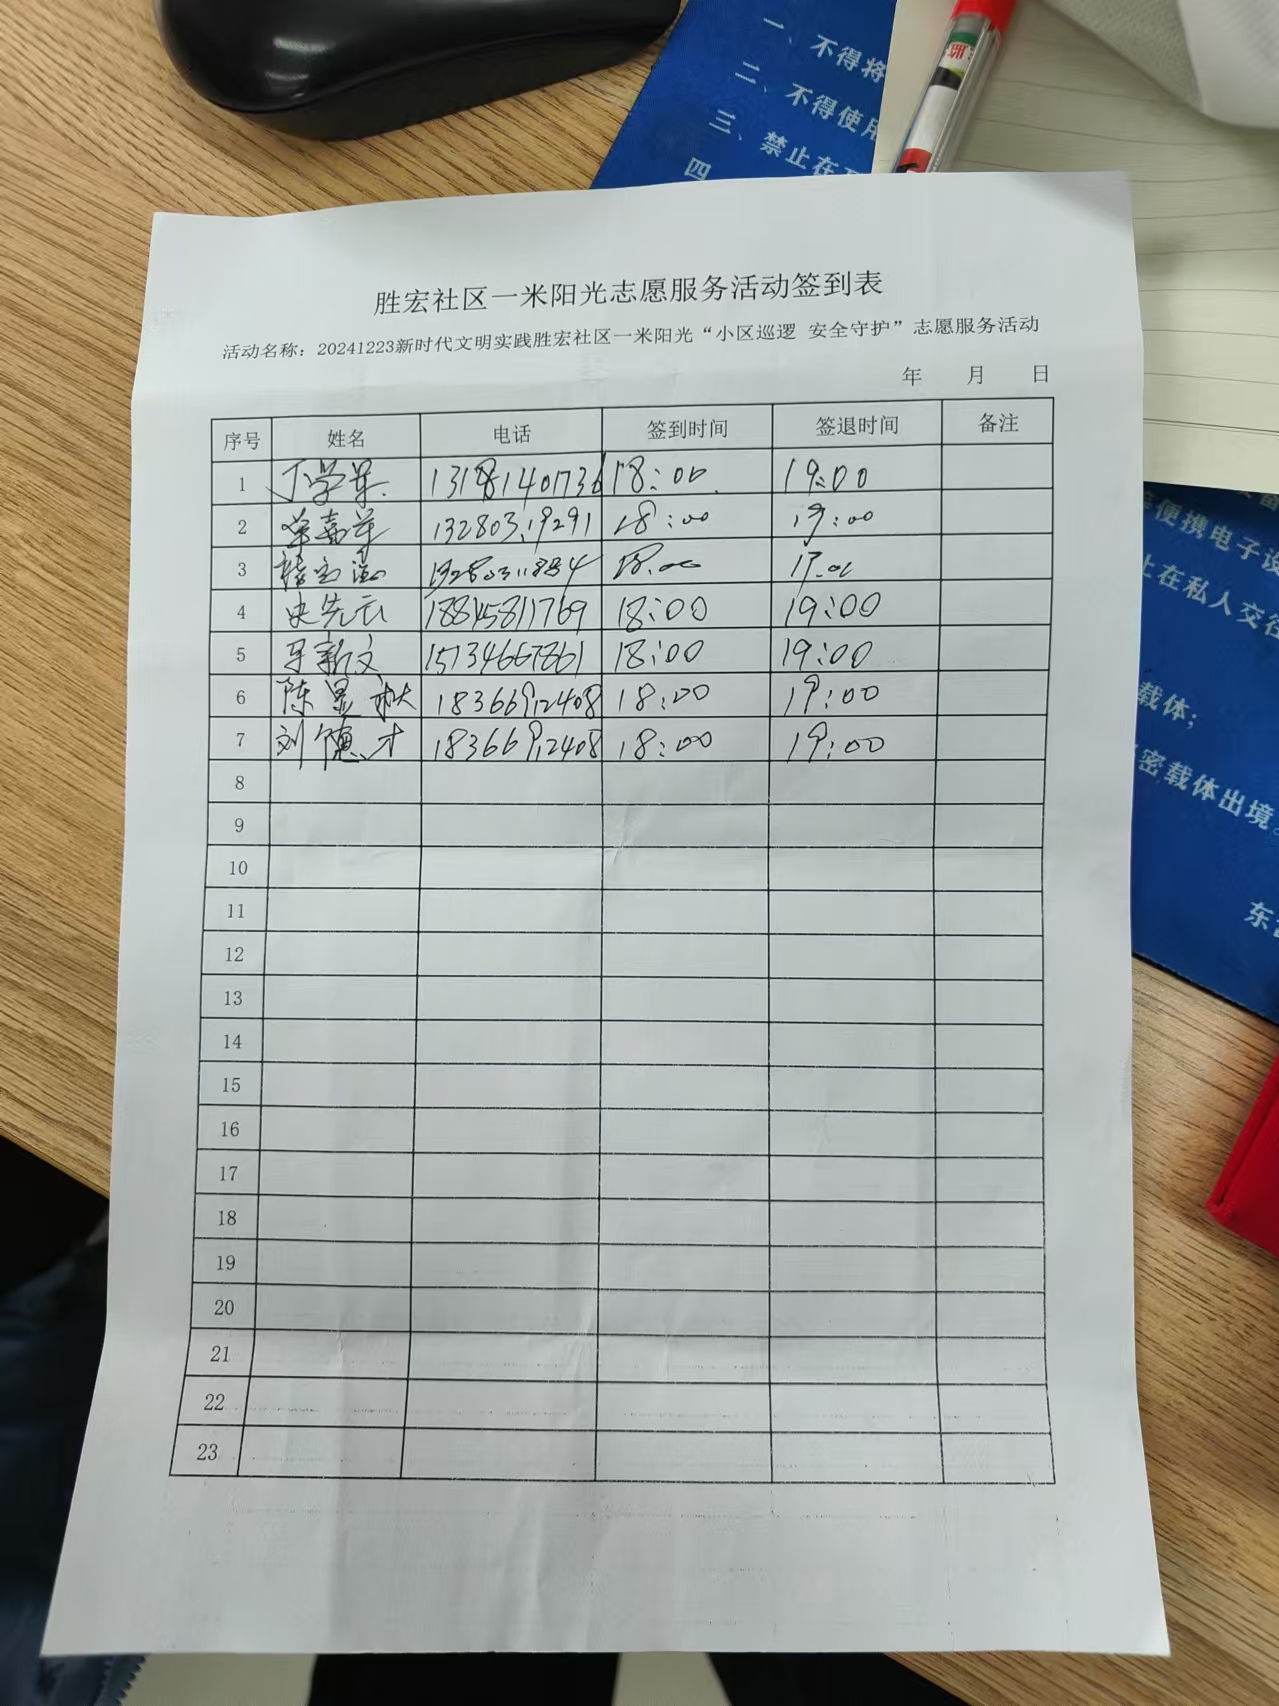 一、不得将
二、不得使用
三、禁止在
四
胜宏社区一米阳光志愿服务活动签到表
活动名称：20241223新时代文明实践胜宏社区一米阳光“小区巡逻 安全守护”志愿服务活动
年 月 日
序号 姓名 电话 签到时间 签退时间 备注
1 丁学军 13181401736 18:00 19:00
2 13280319291 18:00 19:00
3 18:00
4 史先云 18845811769 18:00 19:00
5 新文 15134667861 18:00 19:00
6 陈显秋 18366912408 18:00 19:00
7 刘德才 18366912408 18:00 19:00
8
9
10
11
12
13
14
15
16
17
18
19
20
21
22
23
便携电子设
上在私人交往
载体；
密载体出境。
东